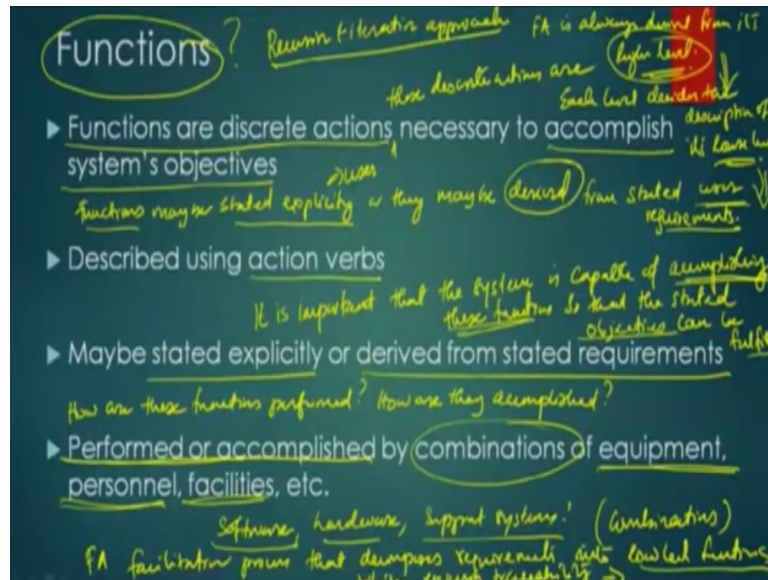 Functions ?
Recursion & iterative approach
FA is always derived from its
higher level.
these discrete actions are
Each level decides the
description of
its lower
▶ Functions are discrete actions necessary to accomplish
system's objectives
users
Functions may be stated explicitly or they may be derived from stated user
requirements.
▶ Described using action verbs
It is important that the system is capable of accomplishing
these functions so that the stated
objectives can be
▶ Maybe stated explicitly or derived from stated requirements
How are these functions performed? How are they accomplished?
▶ Performed or accomplished by combinations of equipment,
personnel, facilities, etc.
Software, hardware, support systems! (combinations)
FA facilitation process that decomposes requirements into functions